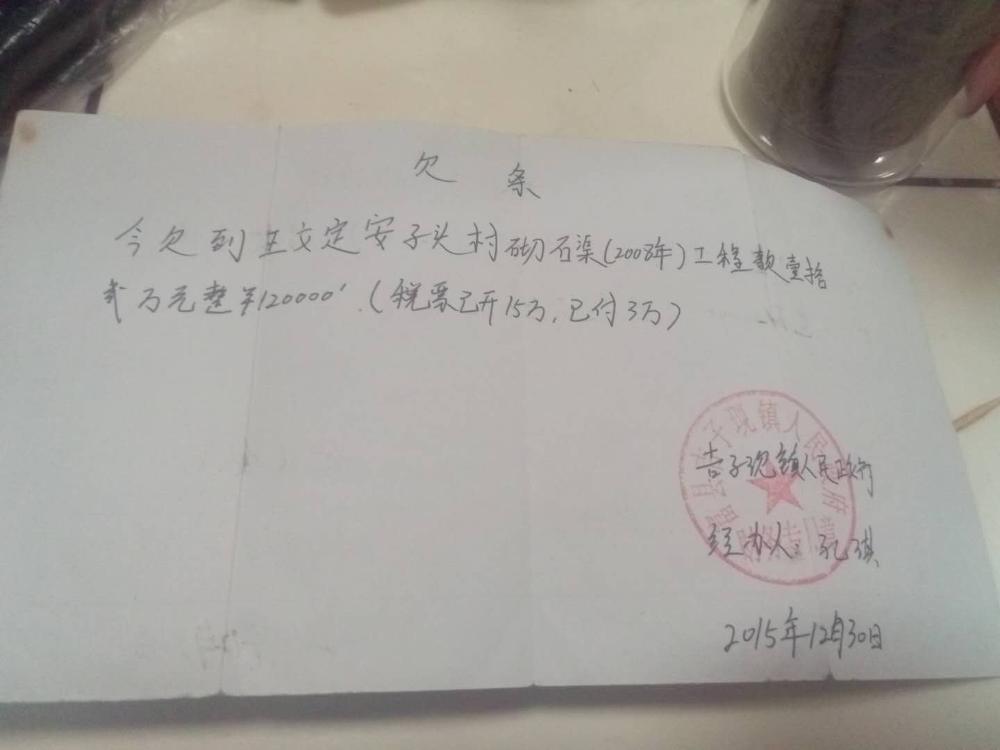 欠 条
今欠到王文定安子头村砌石渠(2008年)工程款壹拾
贰万元整¥120000'.(税票已开15万,已付3万)
吉子现镇人民政府
经办人:孔琪
2015年12月30日
富县吉子现镇人民政府